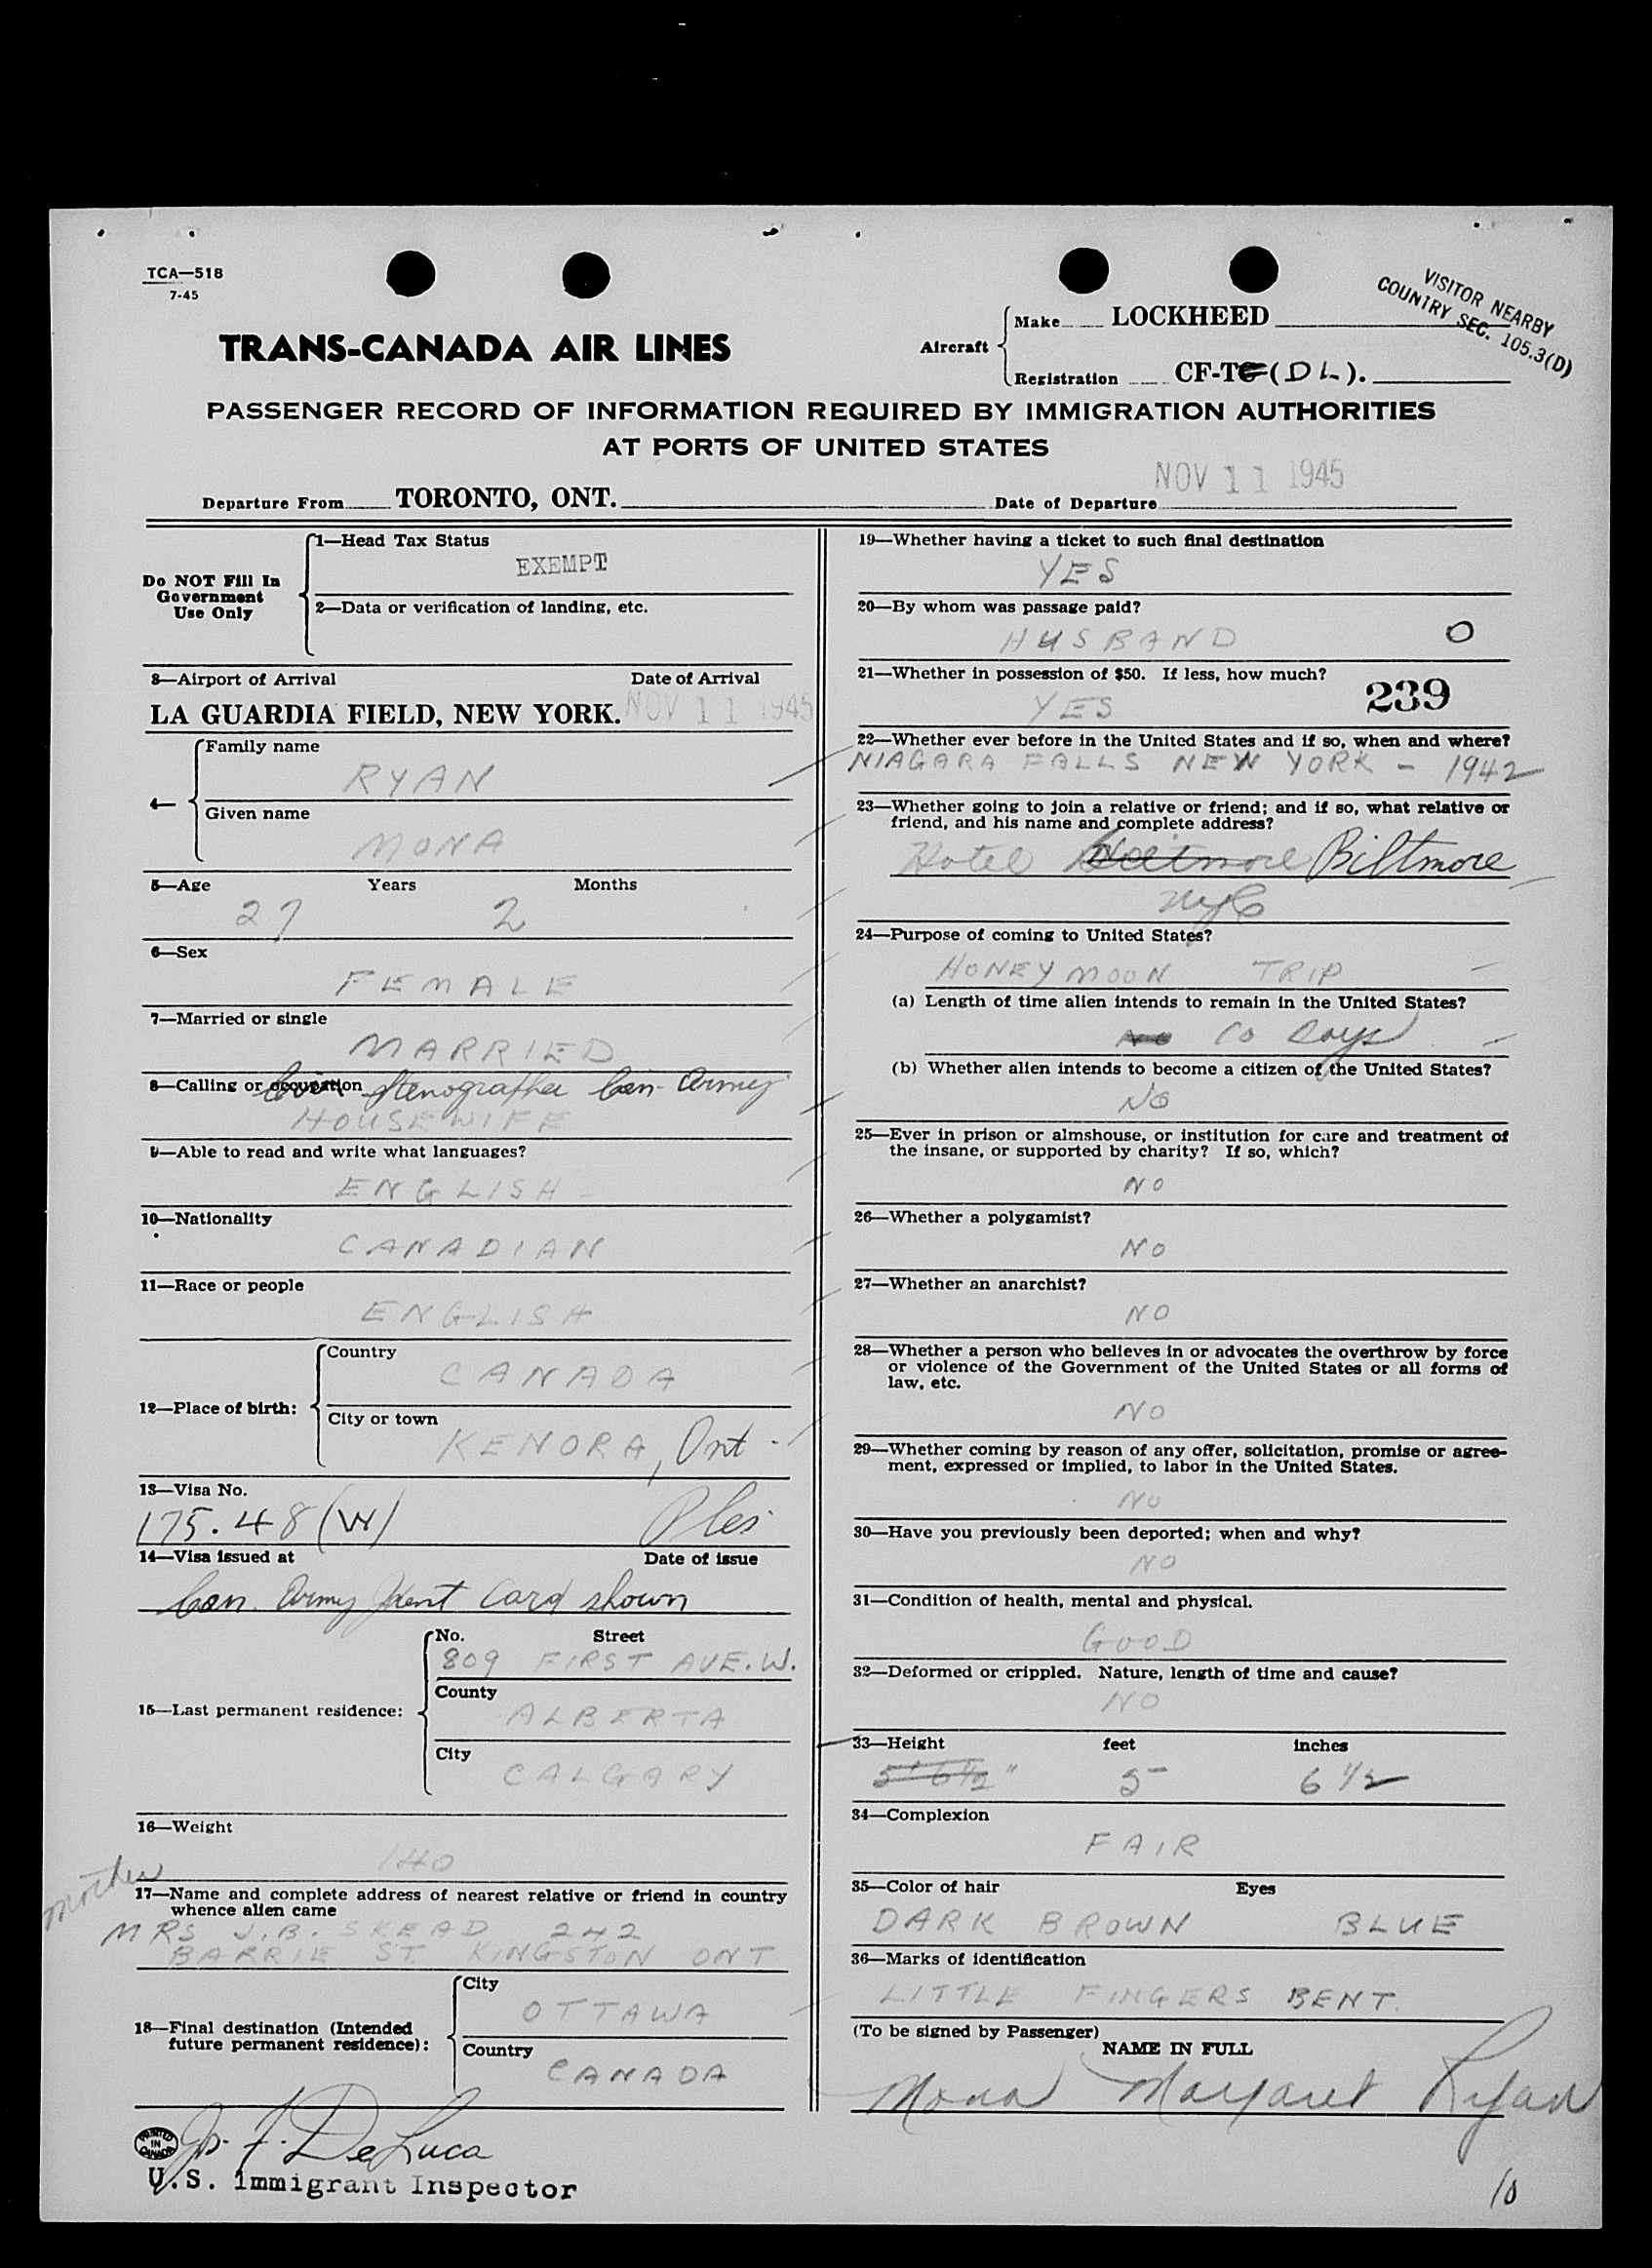 TCA—518
7-45
TRANS-CANADA AIR LINES
Aircraft
Make LOCKHEED
Registration CF-TC (DL).
VISITOR NEARBY
COUNTRY SEC. 105.3(D)
PASSENGER RECORD OF INFORMATION REQUIRED BY IMMIGRATION AUTHORITIES
AT PORTS OF UNITED STATES
NOV 11 1945
Departure From TORONTO, ONT. Date of Departure
Do NOT Fill In
Government
Use Only
1—Head Tax Status
EXEMPT
2—Data or verification of landing, etc.
3—Airport of Arrival Date of Arrival
LA GUARDIA FIELD, NEW YORK. NOV 11 1945
4—
Family name
RYAN
Given name
MONA
5—Age Years Months
27 2
6—Sex
FEMALE
7—Married or single
MARRIED
8—Calling or occupation Stenographer Can. Army
HOUSEWIFE
9—Able to read and write what languages?
ENGLISH
10—Nationality
CANADIAN
11—Race or people
ENGLISH
12—Place of birth:
Country
CANADA
City or town
KENORA, Ont.
13—Visa No.
175.48(W)
14—Visa issued at Date of issue
Can. Army Ident Card shown
15—Last permanent residence:
No. Street
809 FIRST AVE. W.
County
ALBERTA
City
CALGARY
16—Weight
140
mother
17—Name and complete address of nearest relative or friend in country
whence alien came
MRS J.B. SKEAD 242
BARRIE ST. KINGSTON ONT
18—Final destination (Intended
future permanent residence):
City
OTTAWA
Country
CANADA
PRINTED
IN
CANADA
Jos. F. DeLuca
U.S. Immigrant Inspector
19—Whether having a ticket to such final destination
YES
20—By whom was passage paid?
HUSBAND O
21—Whether in possession of $50. If less, how much?
YES 239
22—Whether ever before in the United States and if so, when and where?
NIAGARA FALLS NEW YORK - 1942
23—Whether going to join a relative or friend; and if so, what relative or
friend, and his name and complete address?
Hotel Biltmore
NYC
24—Purpose of coming to United States?
HONEYMOON TRIP
(a) Length of time alien intends to remain in the United States?
10 Days
(b) Whether alien intends to become a citizen of the United States?
NO
25—Ever in prison or almshouse, or institution for care and treatment of
the insane, or supported by charity? If so, which?
NO
26—Whether a polygamist?
NO
27—Whether an anarchist?
NO
28—Whether a person who believes in or advocates the overthrow by force
or violence of the Government of the United States or all forms of
law, etc.
NO
29—Whether coming by reason of any offer, solicitation, promise or agree-
ment, expressed or implied, to labor in the United States.
NO
30—Have you previously been deported; when and why?
NO
31—Condition of health, mental and physical.
GOOD
32—Deformed or crippled. Nature, length of time and cause?
NO
33—Height feet inches
5' 6 1/2" 5 6 1/2
34—Complexion
FAIR
35—Color of hair Eyes
DARK BROWN BLUE
36—Marks of identification
LITTLE FINGERS BENT.
(To be signed by Passenger)
NAME IN FULL
Mona Margaret Ryan
10